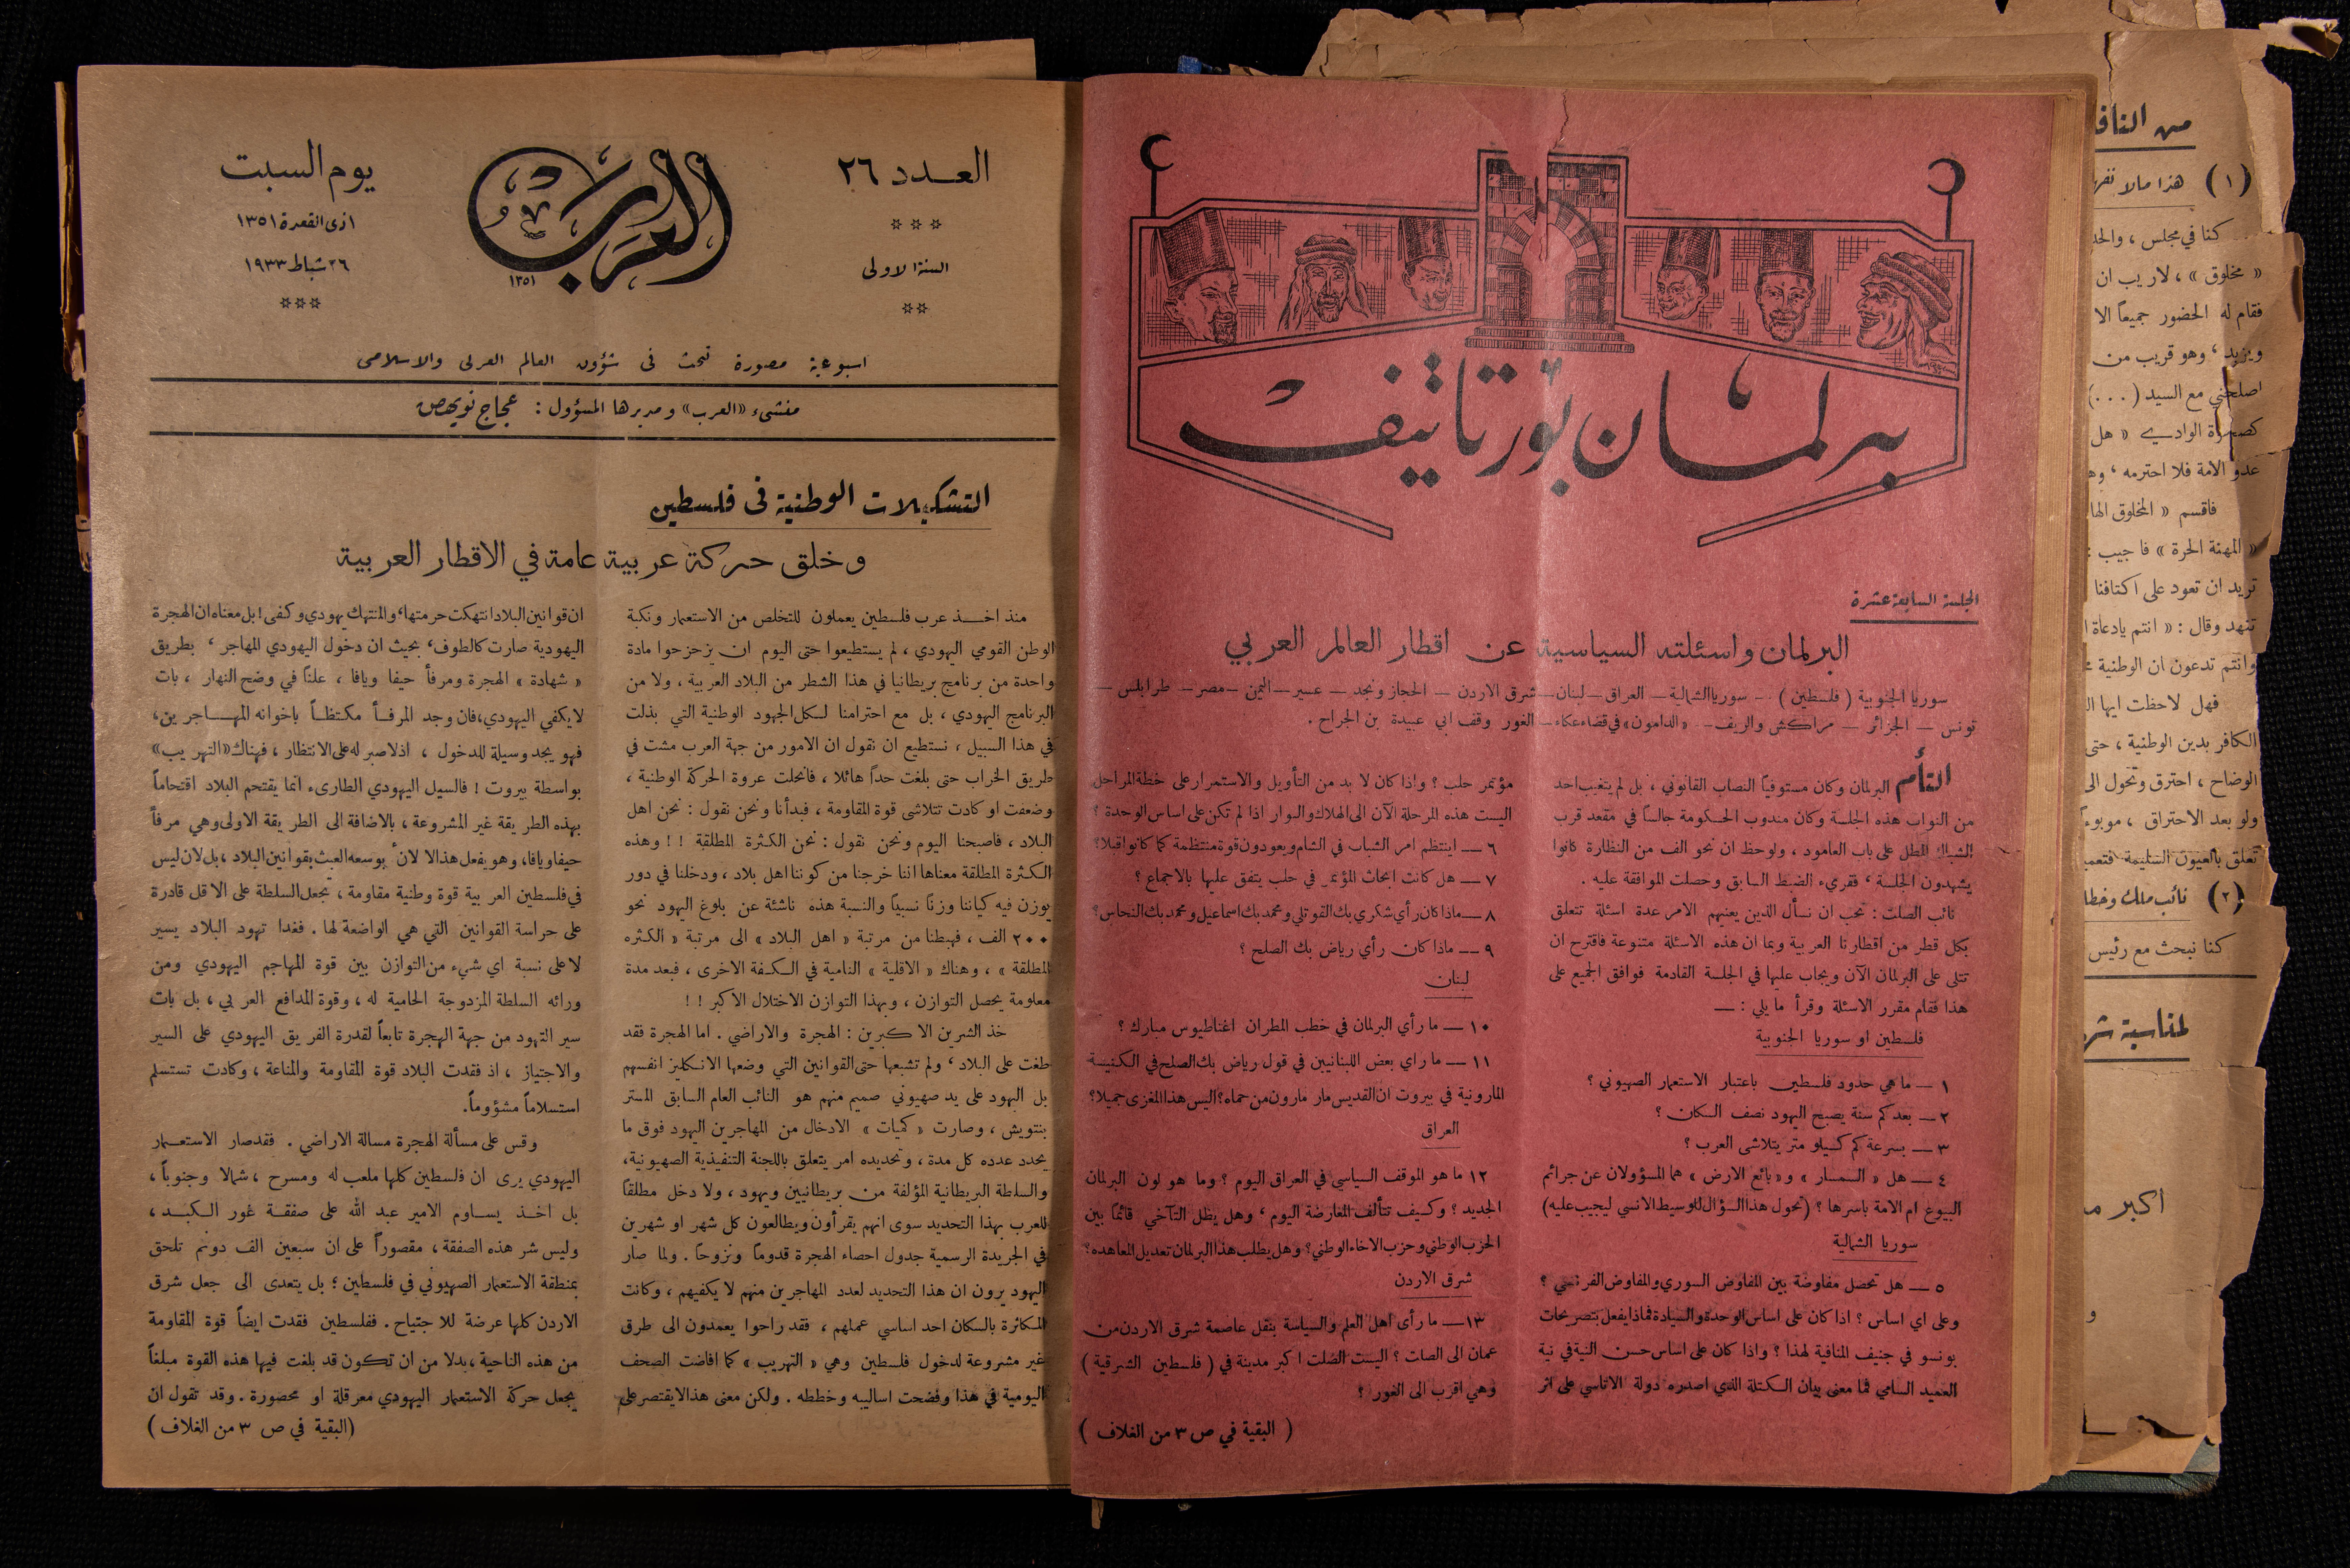 برلمان بورتاتيف
الجلسة السابعة عشرة
البرلمان واسئلته السياسية عن اقطار العالم العربي
سوريا الجنوبية ( فلسطين ) — سوريا الشمالية — العراق — لبنان — شرق الاردن — الحجاز ونجد — عسير — اليمن — مصر — طرابلس —
تونس — الجزائر — مراكش والريف — «الدامون» في قضاء عكاء — الغور وقف ابي عبيدة بن الجراح .
التأم البرلمان وكان مستوفياً النصاب القانوني ، بل لم يتغيب احد
من النواب هذه الجلسة وكان مندوب الحكومة جالساً في مقعد قرب
الشباك المطل على باب العامود ، ولوحظ ان نحو الف من النظارة كانوا
يشهدون الجلسة ، فقريء الضبط السابق وحصلت الموافقة عليه .
نائب الصلت : نحب ان نسأل الذين يعنيهم الامر عدة اسئلة تتعلق
بكل قطر من اقطارنا العربية وبما ان هذه الاسئلة متنوعة فاقترح ان
تتلى على البرلمان الآن ويجاب عليها في الجلسة القادمة فوافق الجميع على
هذا فقام مقرر الاسئلة وقرأ ما يلي : —
فلسطين او سوريا الجنوبية
١ — ما هي حدود فلسطين باعتبار الاستعمار الصهيوني ؟
٢ — بعد كم سنة يصبح اليهود نصف السكان ؟
٣ — بسرعة كم كيلو متر يتلاشى العرب ؟
٤ — هل « السمسار » و « بائع الارض » هما المسؤولان عن جرائم
البيوع ام الامة باسرها ؟ (تحول هذا السؤال للوسيط الانسي ليجيب عليه)
سوريا الشمالية
٥ — هل تحصل مفاوضة بين المفاوض السوري والمفاوض الفرنسي ؟
وعلى اي اساس ؟ اذا كان على اساس الوحدة والسيادة فماذا يفعل بتصريحات
بونسو في جنيف المنافية لهذا ؟ واذا كان على اساس حسن النية في نية
العميد السامي فما معنى بيان الكتلة الذي اصدره دولة الاتاسي على اثر
مؤتمر حلب ؟ واذا كان لا بد من التأويل والاستمرار على خطة المراحل
اليست هذه المرحلة الآن الى الهلاك والبوار اذا لم تكن على اساس الوحدة ؟
٦ — اينتظم امر الشباب في الشام ويعودون قوة منتظمة كما كانوا قبلا ؟
٧ — هل كانت ابحاث المؤتمر في حلب يتفق عليها بالاجماع ؟
٨ — ماذا كان رأي شكري بك القوتلي ومحمد بك اسماعيل ومحمد بك النحاس ؟
٩ — ماذا كان رأي رياض بك الصلح ؟
لبنان
١٠ — ما رأي البرلمان في خطب المطران اغناطيوس مبارك ؟
١١ — ما راي بعض اللبنانيين في قول رياض بك الصلح في الكنيسة
المارونية في بيروت ان القديس مار مارون من حماه ؟ اليس هذا المغزى جميلا ؟
العراق
١٢ ما هو الموقف السياسي في العراق اليوم ؟ وما هو لون البرلمان
الجديد ؟ وكيف تتألف المعارضة اليوم ، وهل يظل التآخي قائماً بين
الحزب الوطني وحزب الاخاء الوطني ؟ وهل يطلب هذا البرلمان تعديل المعاهده ؟
شرق الاردن
١٣ — ما رأى اهل العلم والسياسة بنقل عاصمة شرق الاردن من
عمان الى الصات ؟ اليست الصلت اكبر مدينة في ( فلسطين الشرقية )
وهي اقرب الى الغور ؟
( البقية في ص ٣ من الغلاف )
العدد ٢٦
السنة الاولى
العرب
١٣٥١
يوم السبت
١ ذى القعدة ١٣٥١
٢٦ شباط ١٩٣٣
اسبوعية مصورة تبحث فى شؤون العالم العربى والاسلامى
منشىء «العرب» ومديرها المسؤول : عجاج نويهض
التشكيلات الوطنية فى فلسطين
وخلق حركة عربية عامة في الاقطار العربية
منذ اخذ عرب فلسطين يعملون للتخلص من الاستعمار ونكبة
الوطن القومي اليهودي ، لم يستطيعوا حتى اليوم ان يزحزحوا مادة
واحدة من برنامج بريطانيا في هذا الشطر من البلاد العربية ، ولا من
البرنامج اليهودي ، بل مع احترامنا لكل الجهود الوطنية التي بذلت
في هذا السبيل ، نستطيع ان نقول ان الامور من جهة العرب مشت في
طريق الخراب حتى بلغت حداً هائلا ، فانحلت عروة الحركة الوطنية ،
وضعفت او كادت تتلاشى قوة المقاومة ، فبدأنا ونحن نقول : نحن اهل
البلاد ، فاصبحنا اليوم ونحن نقول : نحن الكثرة المطلقة ! ! وهذه
الكثرة المطلقة معناها اننا خرجنا من كوننا اهل بلاد ، ودخلنا في دور
يوزن فيه كياننا وزناً نسبياً والنسبة هذه ناشئة عن بلوغ اليهود نحو
٢٠٠ الف ، فهبطنا من مرتبة « اهل البلاد » الى مرتبة « الكثره
المطلقة » ، وهناك « الاقلية » النامية في الكفة الاخرى ، فبعد مدة
معلومة يحصل التوازن ، وبهذا التوازن الاختلال الاكبر ! !
خذ الشرين الاكبرين : الهجرة والاراضي . اما الهجرة فقد
طغت على البلاد ، ولم تشبعها حتى القوانين التي وضعها الانكليز انفسهم
بل اليهود على يد صهيوني صميم منهم هو النائب العام السابق المستر
بنتويش ، وصارت « كميات » الادخال من المهاجرين اليهود فوق ما
يحدد عدده كل مدة ، وتحديده امر يتعلق باللجنة التنفيذية الصهيونية ،
والسلطة البريطانية المؤلفة من بريطانيين ويهود ، ولا دخل مطلقاً
للعرب بهذا التحديد سوى انهم يقرأون ويطالعون كل شهر او شهرين
في الجريدة الرسمية جدول احصاء الهجرة قدوماً ونزوحاً . ولما صار
اليهود يرون ان هذا التحديد لعدد المهاجرين منهم لا يكفيهم ، وكانت
المكاثرة بالسكان احد اساسي عملهم ، فقد راحوا يعمدون الى طرق
غير مشروعة لدخول فلسطين وهي « التهريب » كما افاضت الصحف
اليومية في هذا وفضحت اساليبه وخططه . ولكن معنى هذا لا يقتصر على
ان قوانين البلاد انتهكت حرمتها ، والمنتهك يهودي وكفى ! بل معناه ان الهجرة
اليهودية صارت كالطوف ، بحيث ان دخول اليهودي المهاجر ، بطريق
« شهادة » الهجرة ومرفأ حيفا ويافا ، علناً في وضح النهار ، بات
لا يكفي اليهودي ، فان وجد المرفأ مكتظاً باخوانه المهاجرين ،
فهو يجد وسيلة للدخول ، اذ لا صبر له على الانتظار ، فهناك «التهريب»
بواسطة بيروت ! فالسيل اليهودي الطارىء انما يقتحم البلاد اقتحاماً
بهذه الطريقة غير المشروعة ، بالاضافة الى الطريقة الاولى وهي مرفأ
حيفا ويافا ، وهو يفعل هذا لا لان بوسعه العبث بقوانين البلاد ، بل لان ليس
في فلسطين العربية قوة وطنية مقاومة ، تجعل السلطة على الاقل قادرة
على حراسة القوانين التي هي الواضعة لها . فغدا تهود البلاد يسير
لا على نسبة اي شيء من التوازن بين قوة المهاجم اليهودي ومن
ورائه السلطة المزدوجة الحامية له ، وقوة المدافع العربي ، بل بات
سير التهود من جهة الهجرة تابعاً لقدرة الفريق اليهودي على السير
والاجتياز ، اذ فقدت البلاد قوة المقاومة والمناعة ، وكادت تستسلم
استسلاماً مشؤوماً.
وقس على مسألة الهجرة مسالة الاراضي . فقد صار الاستعمار
اليهودي يرى ان فلسطين كلها ملعب له ومسرح ، شمالا وجنوباً ،
بل اخذ يساوم الامير عبد الله على صفقة غور الكبد ،
وليس شر هذه الصفقة ، مقصوراً على ان سبعين الف دونم تلحق
بمنطقة الاستعمار الصهيوني في فلسطين ؛ بل يتعدى الى جعل شرق
الاردن كلها عرضة للاجتياح . ففلسطين فقدت ايضاً قوة المقاومة
من هذه الناحية ، بدلا من ان تكون قد بلغت فيها هذه القوة مبلغاً
يجعل حركة الاستعمار اليهودي معرقلة او محصورة . وقد تقول ان
(البقية في ص ٣ من الغلاف )
من
(١) هذا مالا
كنا في مجلس ،
« مخلوق » ، لاريب ان
فقام له الحضور جميعاً الا
ويزيد ، وهو قريب من
اصلحني مع السيد (...)
الوادي « هل
عدو الامة فلا احترمه ،
فاقسم « المخلوق
« المهنة الحرة » فاجيب :
تريد ان تعود على اكتافنا
تنهد وقال : « انتم يادعاة
وانتم تدعون ان الوطنية
فهل لاحظت ايها
الكافر بدين الوطنية ، حتى
الوضاح ، احترق وتحول الى
ولو بعد الاحتراق ،
تعلق بالعيون السليمة
(٢) نائب ملك
كنا نبحث مع رئيس
لمناسبة
اكبر
و